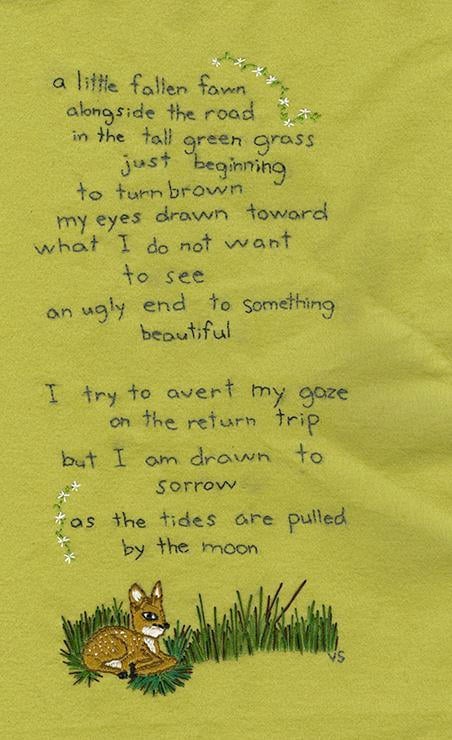 a little fallen fawn
alongside the road
in the tall green grass
just beginning
to turn brown
my eyes drawn toward
what I do not want
to see
an ugly end to something
beautiful
I try to avert my gaze
on the return trip
but I am drawn to
sorrow
as the tides are pulled
by the moon
VS